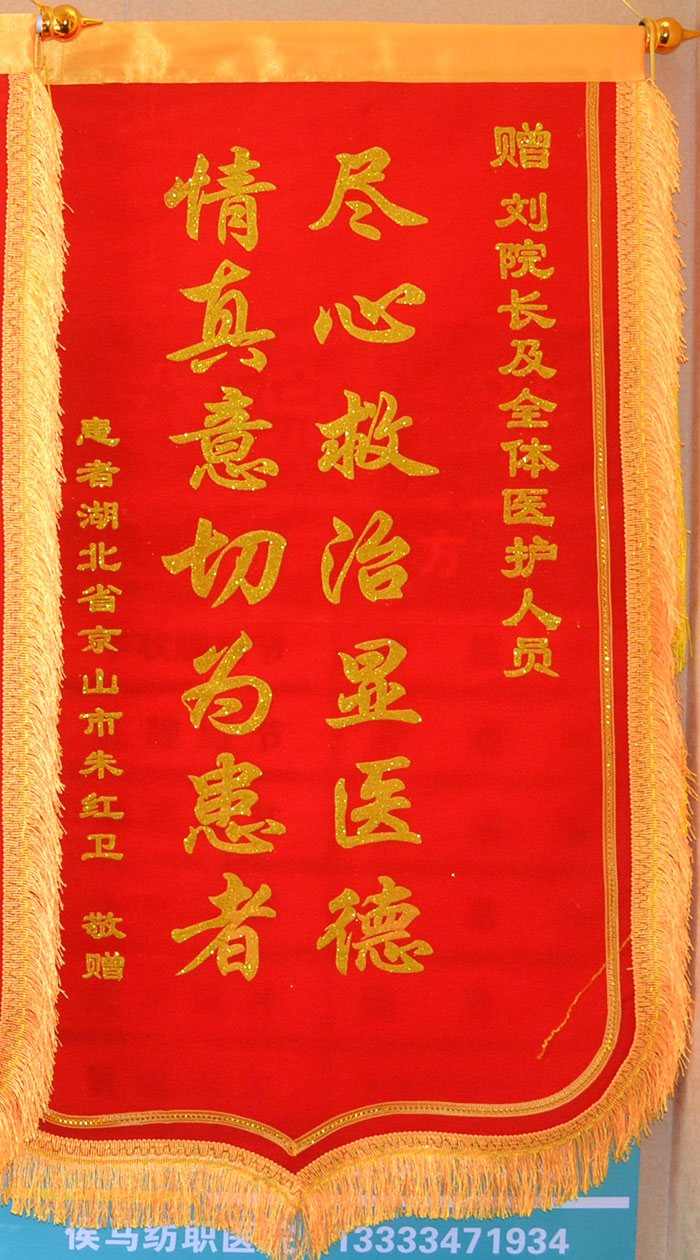 赠 刘院长及全体医护人员
尽心救治显医德
情真意切为患者
患者湖北省京山市朱红卫 敬赠
侯马纺职医 13333471934